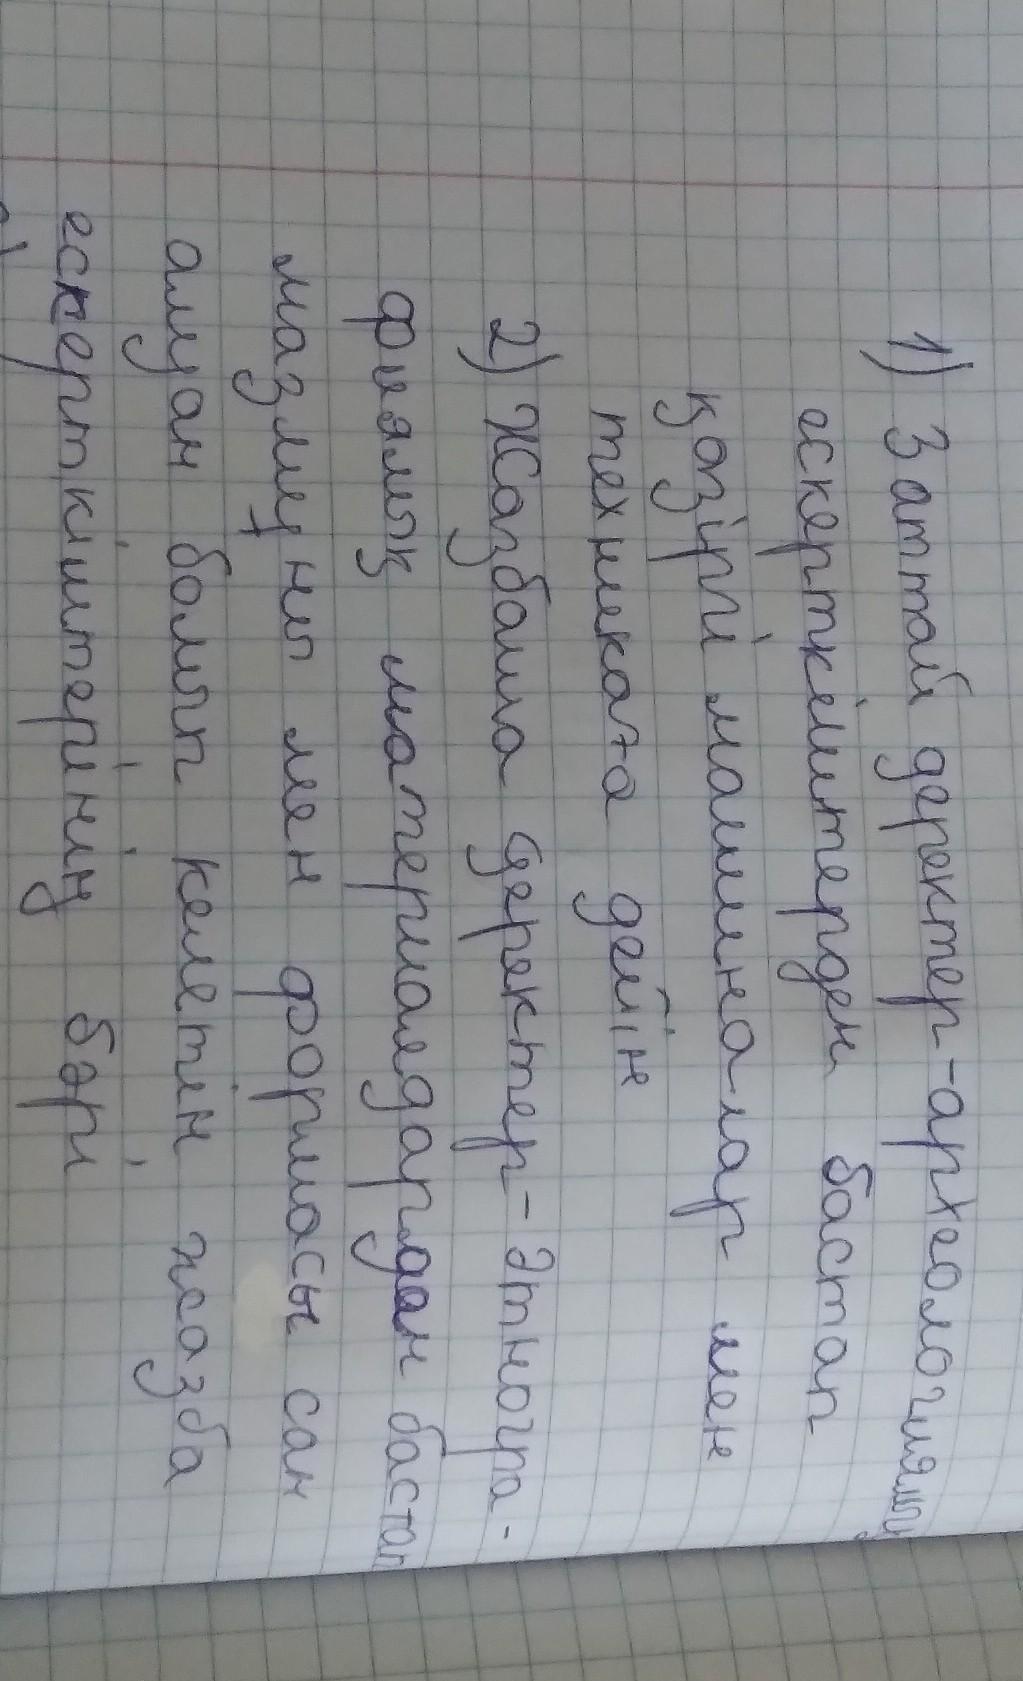 1) Заттай деректер-археологиялық
ескерткіштерден бастап
қазіргі машиналар мен
техникаға дейін
2) Жазбаша деректер-Этногра-
фиялық материалдардан бастап
мазмұны мен формасы сан
алуан болып келетін жазба
ескерткіштерінің бәрі